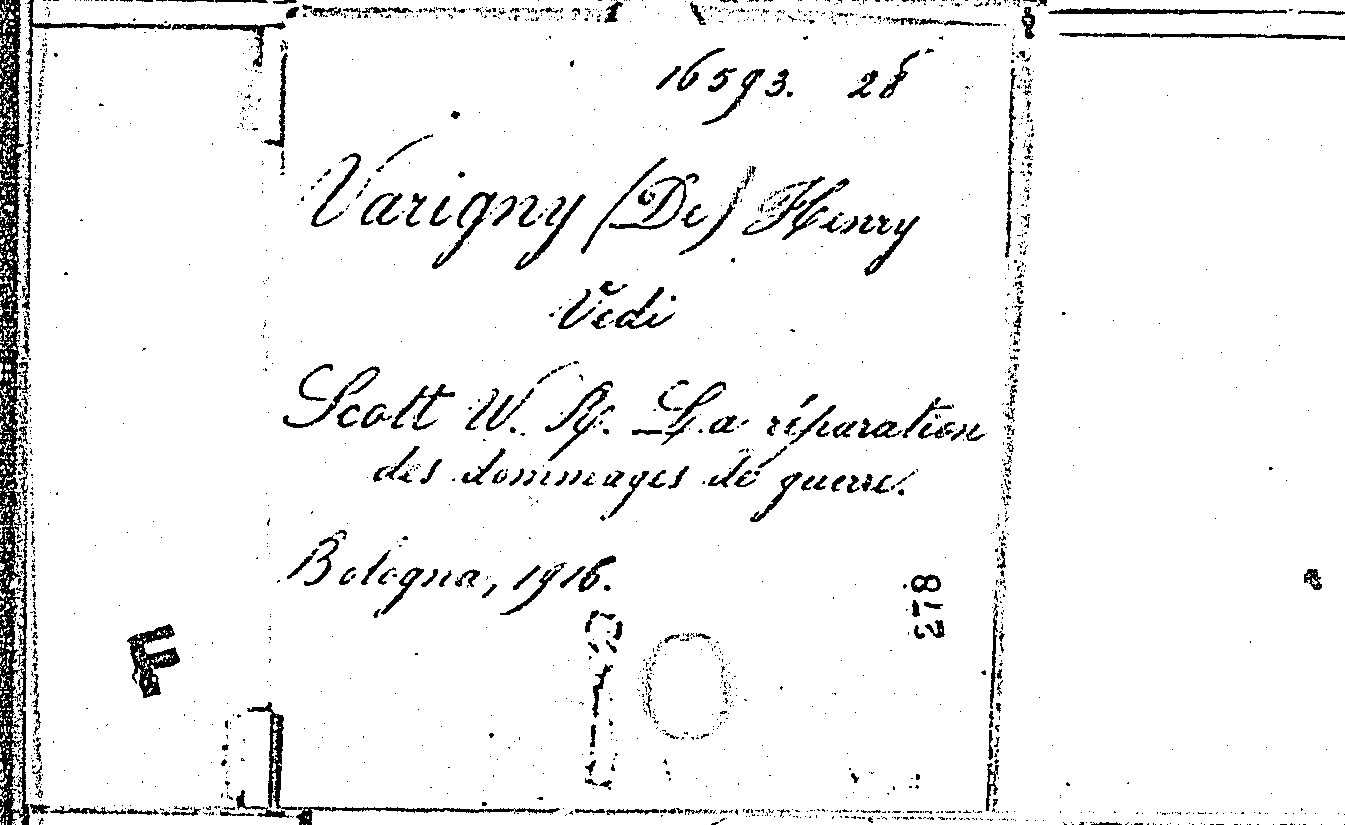 16593. 28
Varigny (De) Henry
Vedi
Scott W. R. La réparation
des dommages de guerre.
Bologna, 1916.
278
F